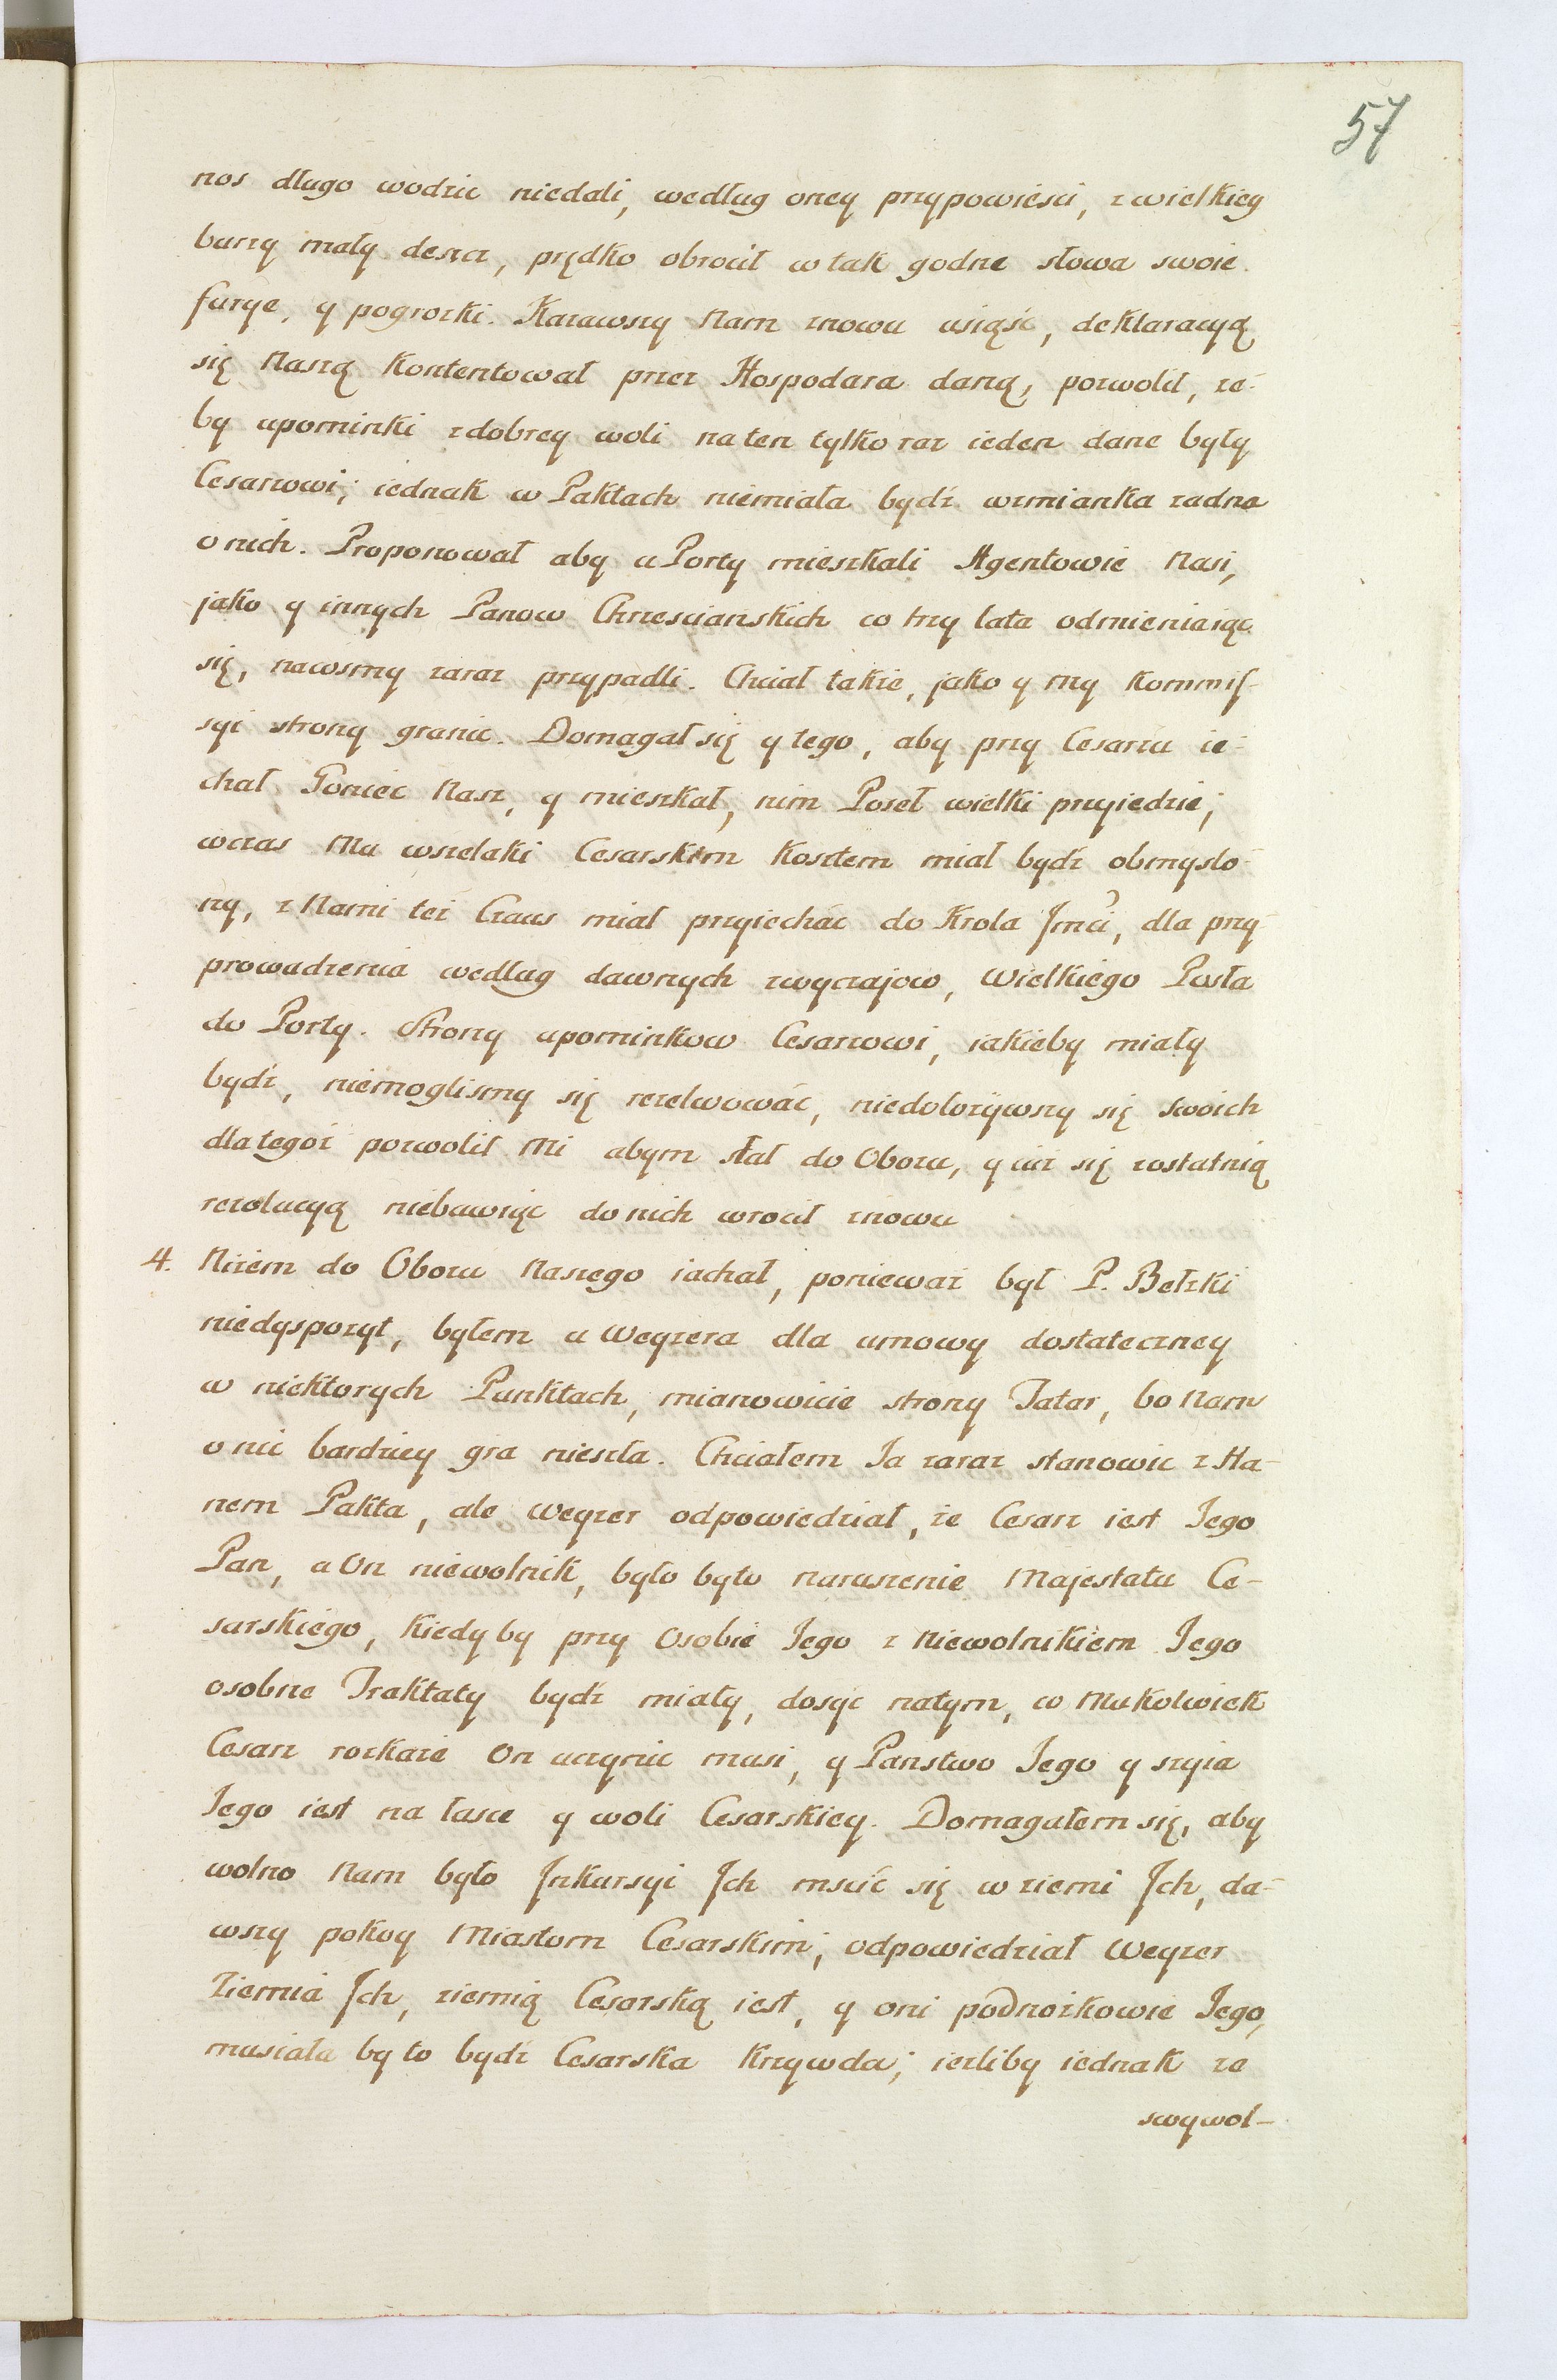 57
nos długo wodzic niedali, według oney przypowieści, z wielkiey
burzy mały deszcz, prędko obrocił w tak godne słowa swoie
furye, y pogrozki. Kazawszy Nam znowu usiąść, deklaracyą
się Naszą kontentował przez Hospodara daną, pozwolił, ze-
by upominki z dobrey woli na ten tylko raz ieden dane były
Cesarzowi; iednak w Paktach niemiała bydź wzmianka zadna
o nich. Proponował aby u Porty mieszkali Agentowie Nasi,
jako y innych Panow Chrzescianskich co trzy lata odmieniaiąc
się, nacosmy zaraz przypadli. Chciał takze, jako y my Kommis-
syi strony granic. Domagał się y tego, aby przy Cesarzu ie-
chał Goniec Nasz, y mieszkał, nim Poseł wielki przyiedzie;
wczas Mu wszelaki Cesarskim kosztem miał bydź obmyslo-
ny, z Nami też Czaus miał przyiechać do Krola Jmci, dla przy-
prowadzenia według dawnych zwyczajow, Wielkiego Posła
do Porty. Strony upominkow Cesarzowi, iakieby miały
bydź, niemoglismy się rezelwować, niedołozywszy się swoich
dla tegoż pozwolił Mi abym słał do Obozu, y iuz się zostatnią
rezolucyą niebawiąc do nich wrocił znowu
4. Nizem do Obozu Naszego iachał, poniewaz był P. Bełzki
niedyspozyt, byłem u Wezyra dla umowy dostateczney
w niektorych Punktach, mianowicie strony Tatar, bo Nam
o nic bardziey gra nieszła. Chciałem Ja zaraz stanowic z Ha-
nem Pakta, ale Wezyr odpowiedział, ze Cesarz iest Jego
Pan, a On niewolnik, było było naruszenie Majestatu Ce-
sarskiego, kiedyby przy Osobie Jego z Niewolnikiem Jego
osobne Traktaty bydź miały, dosyc natym, co Mukolwiek
Cesarz rozkaze On uczynic musi, y Panstwo Jego y szyia
Jego iest na łasce y woli Cesarskiey. Domagałem się, aby
wolno Nam było Jnkursyi Jch mscić się w ziemi Jch, da-
wszy pokoy Miastom Cesarskim; odpowiedział Wezyr
Ziemia Jch, ziemią Cesarską iest, y oni podnozkowie Jego,
musiała by to bydź Cesarska krzywda; iezliby iednak ze
swywol-